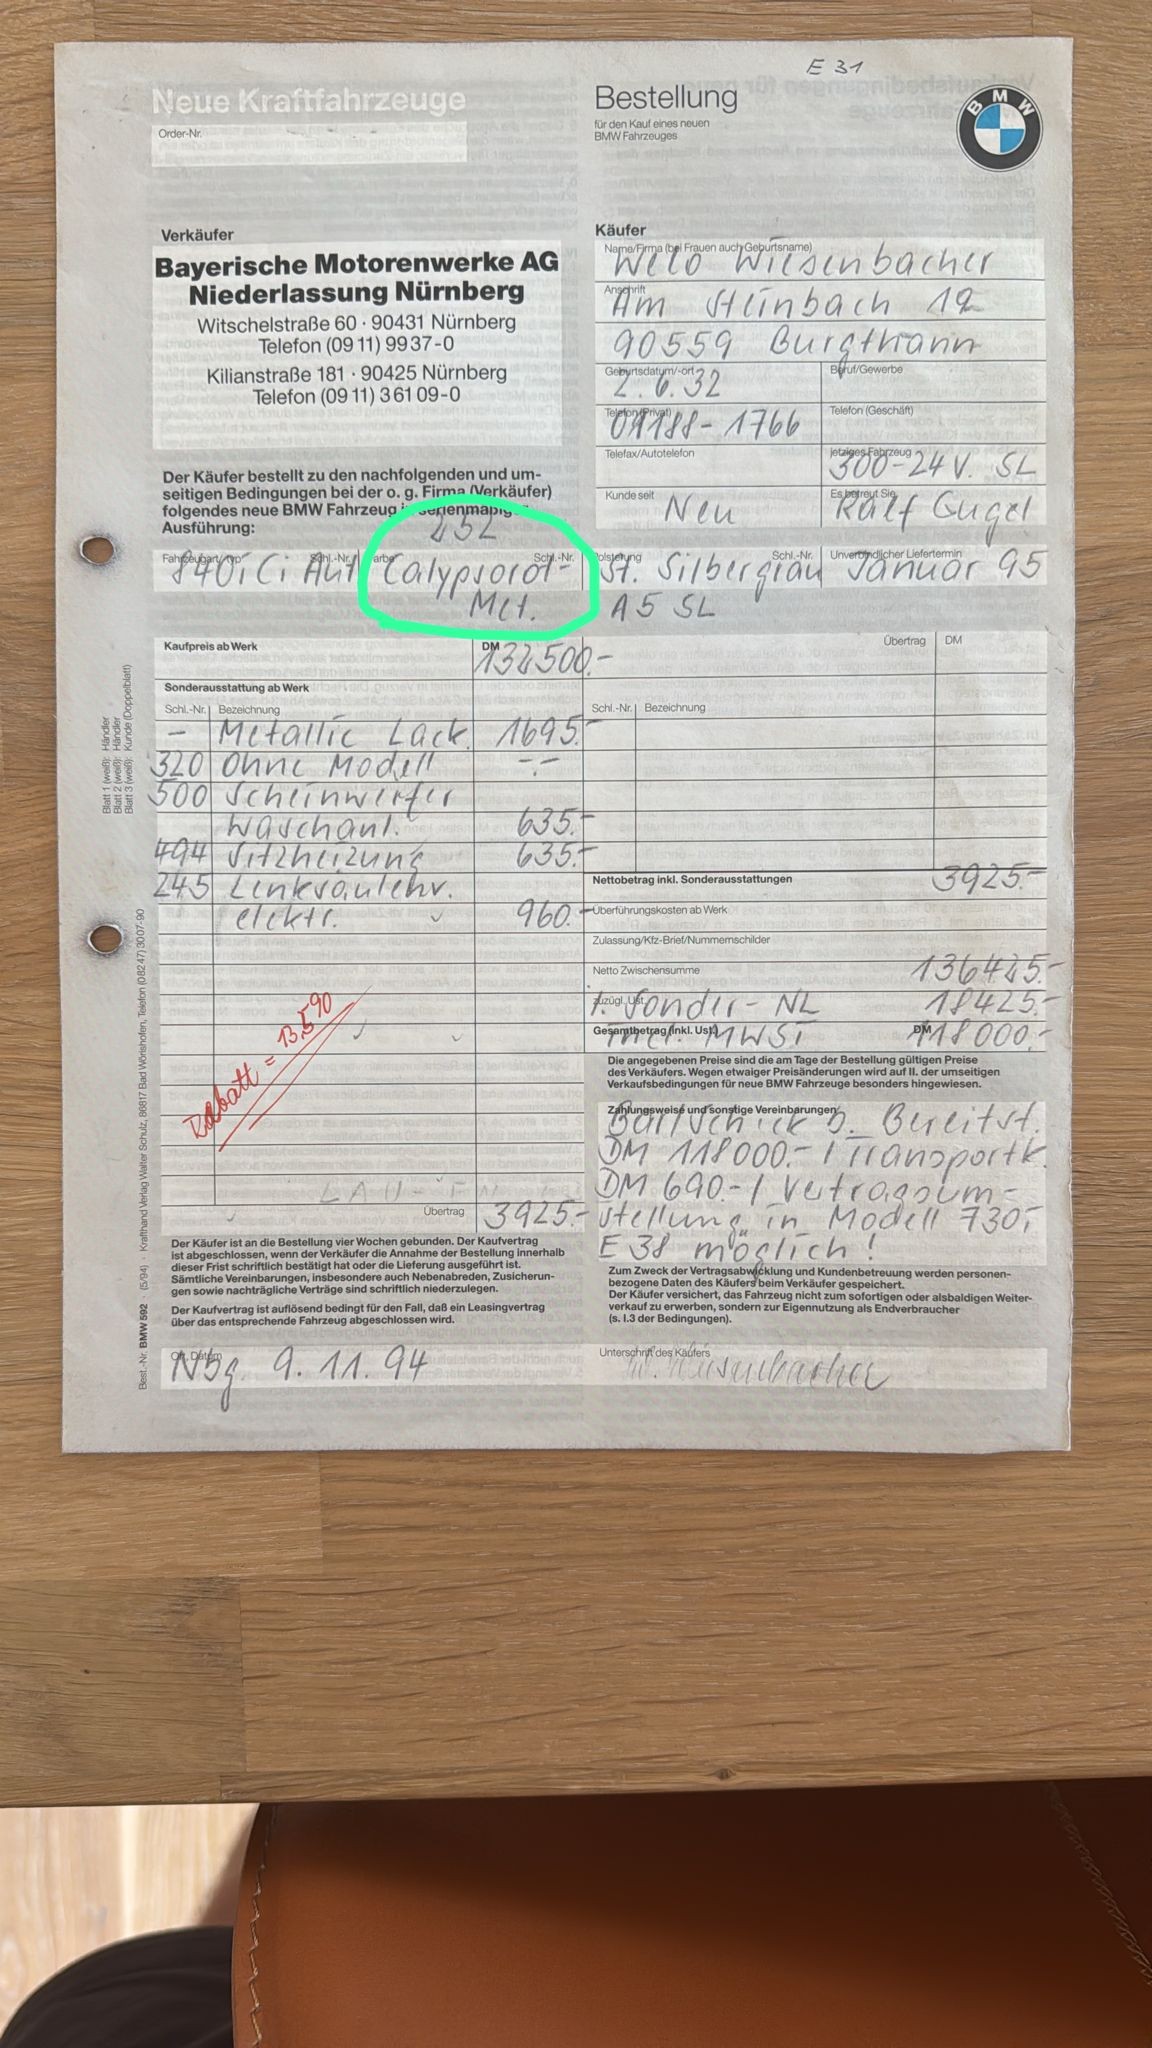 E 31
Neue Kraftfahrzeuge
Order-Nr.
Bestellung
für den Kauf eines neuen
BMW Fahrzeuges
BMW
Verkäufer
Bayerische Motorenwerke AG
Niederlassung Nürnberg
Witschelstraße 60 · 90431 Nürnberg
Telefon (09 11) 99 37-0
Kilianstraße 181 · 90425 Nürnberg
Telefon (09 11) 3 61 09-0
Der Käufer bestellt zu den nachfolgenden und um-
seitigen Bedingungen bei der o. g. Firma (Verkäufer)
folgendes neue BMW Fahrzeug in serienmäßiger
Ausführung:
Käufer
Name/Firma (bei Frauen auch Geburtsname)
Wiesenbacher
Anschrift
Am Steinbach 12
90559 Burgthann
Geburtsdatum/-ort
2.6.32
Beruf/Gewerbe
Telefon (Privat)
09188-1766
Telefon (Geschäft)
Telefax/Autotelefon
jetziges Fahrzeug
300-24 V. SL
Kunde seit
Neu
Es betreut Sie
Ralf Gugel
252
Fahrzeugart/Typ Schl.-Nr.
840i Ci Aut
Farbe Schl.-Nr.
Calypsorot-
Met.
Polsterung Schl.-Nr.
St. Silbergrau
A5 SL
Unverbindlicher Liefertermin
Januar 95
Kaufpreis ab Werk DM 132500.-
Sonderausstattung ab Werk
Schl.-Nr. Bezeichnung
- Metallic Lack. 1695.-
320 Ohne Modell -.-
500 Scheinwerfer
Waschanl. 635.-
494 Sitzheizung 635.-
245 Lenksäulenv.
elektr. 960.-
Rabatt = 13.590
Übertrag 3925.-
Übertrag DM
Schl.-Nr. Bezeichnung
Nettobetrag inkl. Sonderausstattungen 3925.-
Überführungskosten ab Werk
Zulassung/Kfz-Brief/Nummernschilder
Netto Zwischensumme 136425.-
zuzügl. Ust.
Sonder-NL 18425.-
Gesamtbetrag (inkl. Ust.) DM
incl. MWST 118000.-
Die angegebenen Preise sind die am Tage der Bestellung gültigen Preise
des Verkäufers. Wegen etwaiger Preisänderungen wird auf II. der umseitigen
Verkaufsbedingungen für neue BMW Fahrzeuge besonders hingewiesen.
Zahlungsweise und sonstige Vereinbarungen
Bar/Scheck b. Bereitst.
DM 118000.- / Transportk.
DM 690.- / Vertragsum-
stellung in Modell 730i
E 38 möglich!
Der Käufer ist an die Bestellung vier Wochen gebunden. Der Kaufvertrag
ist abgeschlossen, wenn der Verkäufer die Annahme der Bestellung innerhalb
dieser Frist schriftlich bestätigt hat oder die Lieferung ausgeführt ist.
Sämtliche Vereinbarungen, insbesondere auch Nebenabreden, Zusicherun-
gen sowie nachträgliche Verträge sind schriftlich niederzulegen.
Der Kaufvertrag ist auflösend bedingt für den Fall, daß ein Leasingvertrag
über das entsprechende Fahrzeug abgeschlossen wird.
Zum Zweck der Vertragsabwicklung und Kundenbetreuung werden personen-
bezogene Daten des Käufers beim Verkäufer gespeichert.
Der Käufer versichert, das Fahrzeug nicht zum sofortigen oder alsbaldigen Weiter-
verkauf zu erwerben, sondern zur Eigennutzung als Endverbraucher
(s. I.3 der Bedingungen).
Ort, Datum
Nbg 9.11.94
Unterschrift des Käufers
Wiesenbacher
Blatt 1 (weiß): Händler
Blatt 2 (weiß): Händler
Blatt 3 (weiß): Kunde (Doppelblatt)
Best.-Nr. BMW 592 · (5/94) · Krafthand Verlag Walter Schulz, 86817 Bad Wörishofen, Telefon (0 82 47) 30 07-90